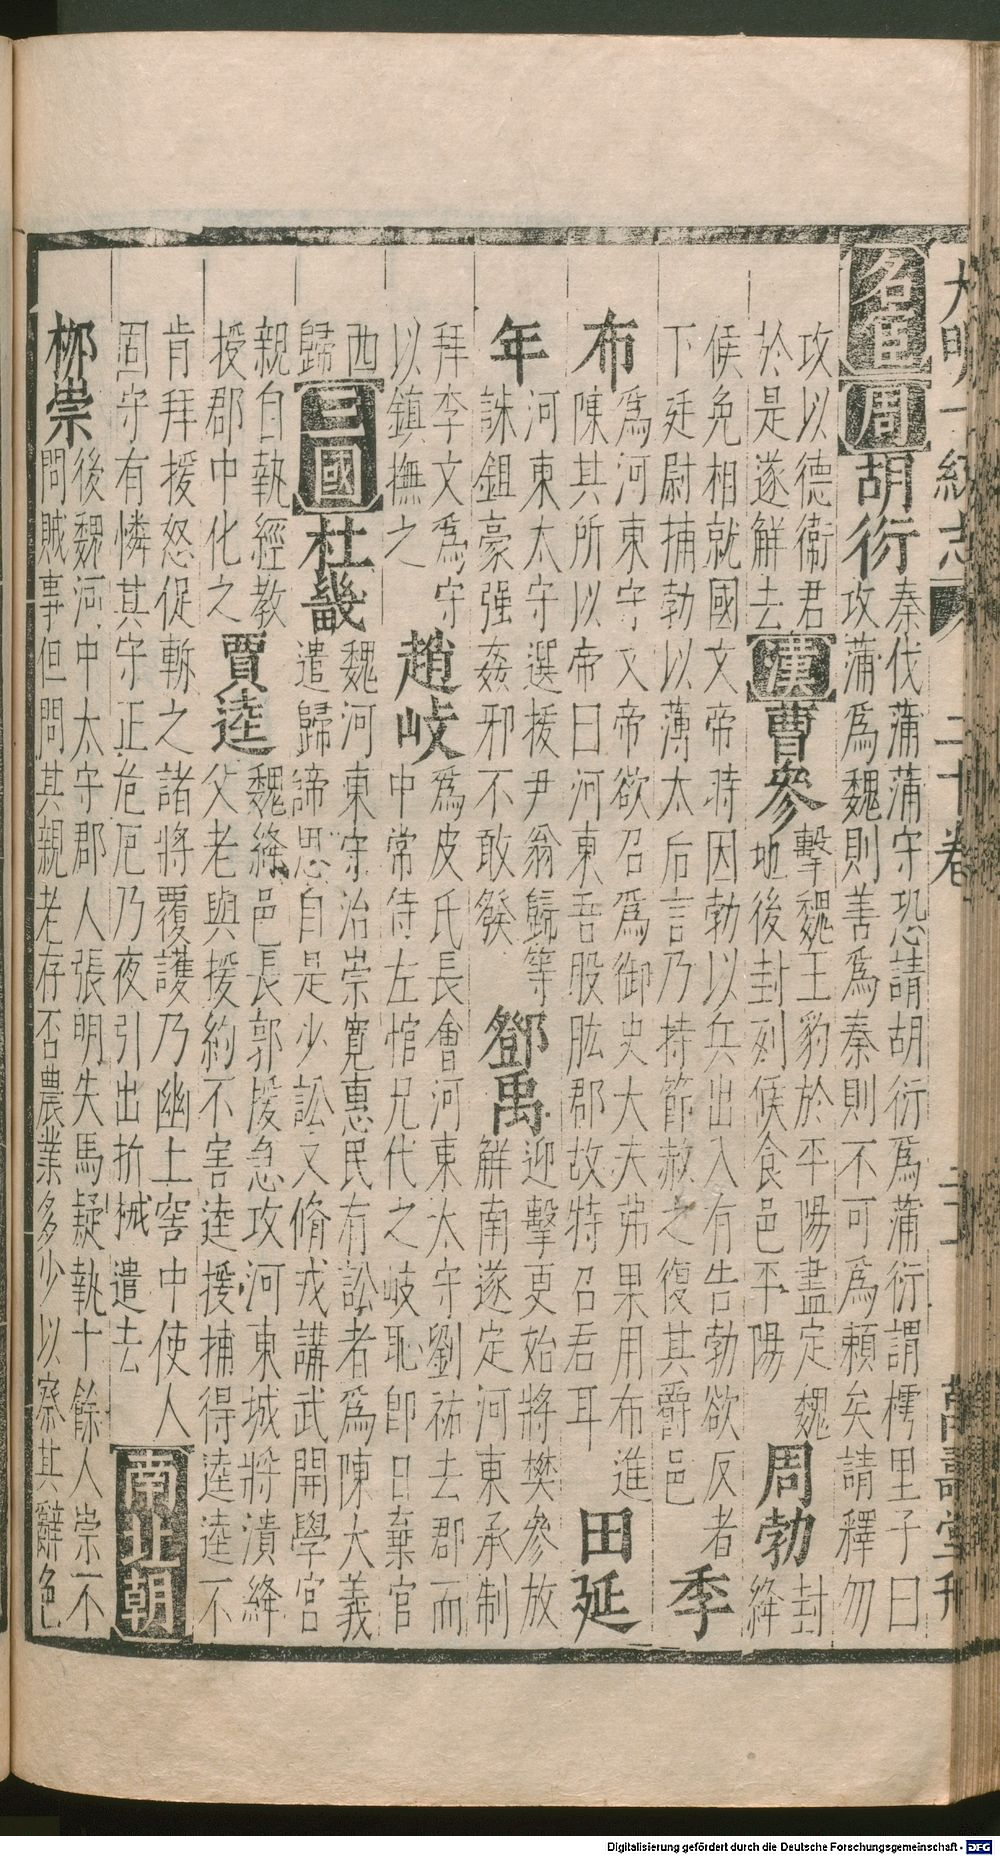 大明一統志 二十卷 萬壽堂刊
名宦 周 胡衍 秦伐蒲蒲守恐請胡衍為蒲衍謂樗里子曰
攻蒲為魏則善為秦則不可為賴矣請釋勿
攻以德衞君
於是遂解去 漢 曹參 擊魏王豹於平陽盡定魏
地後封列侯食邑平陽 周勃 封
絳
侯免相就國文帝時因勃以兵出入有告勃欲反者
下廷尉捕勃以薄太后言乃持節赦之復其爵邑 季
布 為河東守文帝欲召為御史大夫弗果用布進
陳其所以帝曰河東吾股肱郡故特召君耳 田延
年 河東太守選援尹翁歸等
誅鉏豪强姦邪不敢發 鄧禹 迎擊更始將樊參放
解南遂定河東承制
拜李文為守
以鎮撫之 趙岐 為皮氏長會河東太守劉祐去郡而
中常侍左悺兄代之岐恥即日棄官
西
歸 三國 杜畿 魏河東守治崇寛惠民有訟者為陳大義
遣歸諦思自是少訟又脩戎講武開學宮
親自執經教
授郡中化之 賈逵 魏絳邑長郭援急攻河東城將潰絳
父老與援約不害逵援捕得逵逵不
肯拜援怒促斬之諸將覆護乃幽土窖中使人
固守有憐其守正危厄乃夜引出折械遣去 南北朝
栁崇 後魏河中太守郡人張明失馬疑執十餘人崇不
問賊事但問其親老存否農業多少以察其辭色
Digitalisierung gefördert durch die Deutsche Forschungsgemeinschaft - DFG